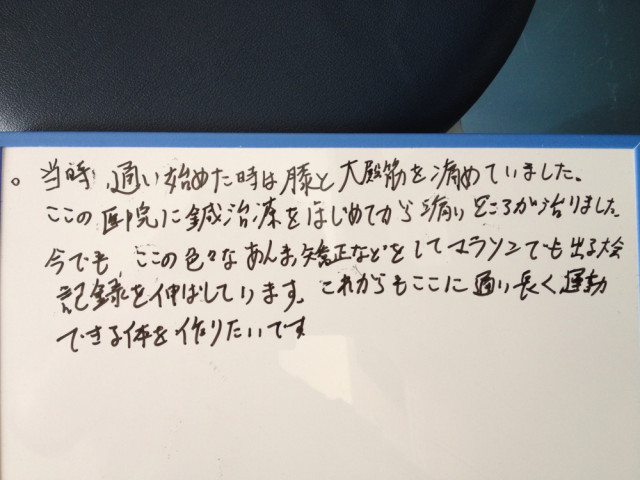 。当時、通い始めた時は膝と大殿筋を痛めていました。
ここの医院に鍼治療をはじめてから痛いところが治りました。
今でも、ここの色々なあんま、矯正などをしてマラソンでも出る大会
記録を伸ばしています。これからもここに通い長く運動
できる体を作りたいです